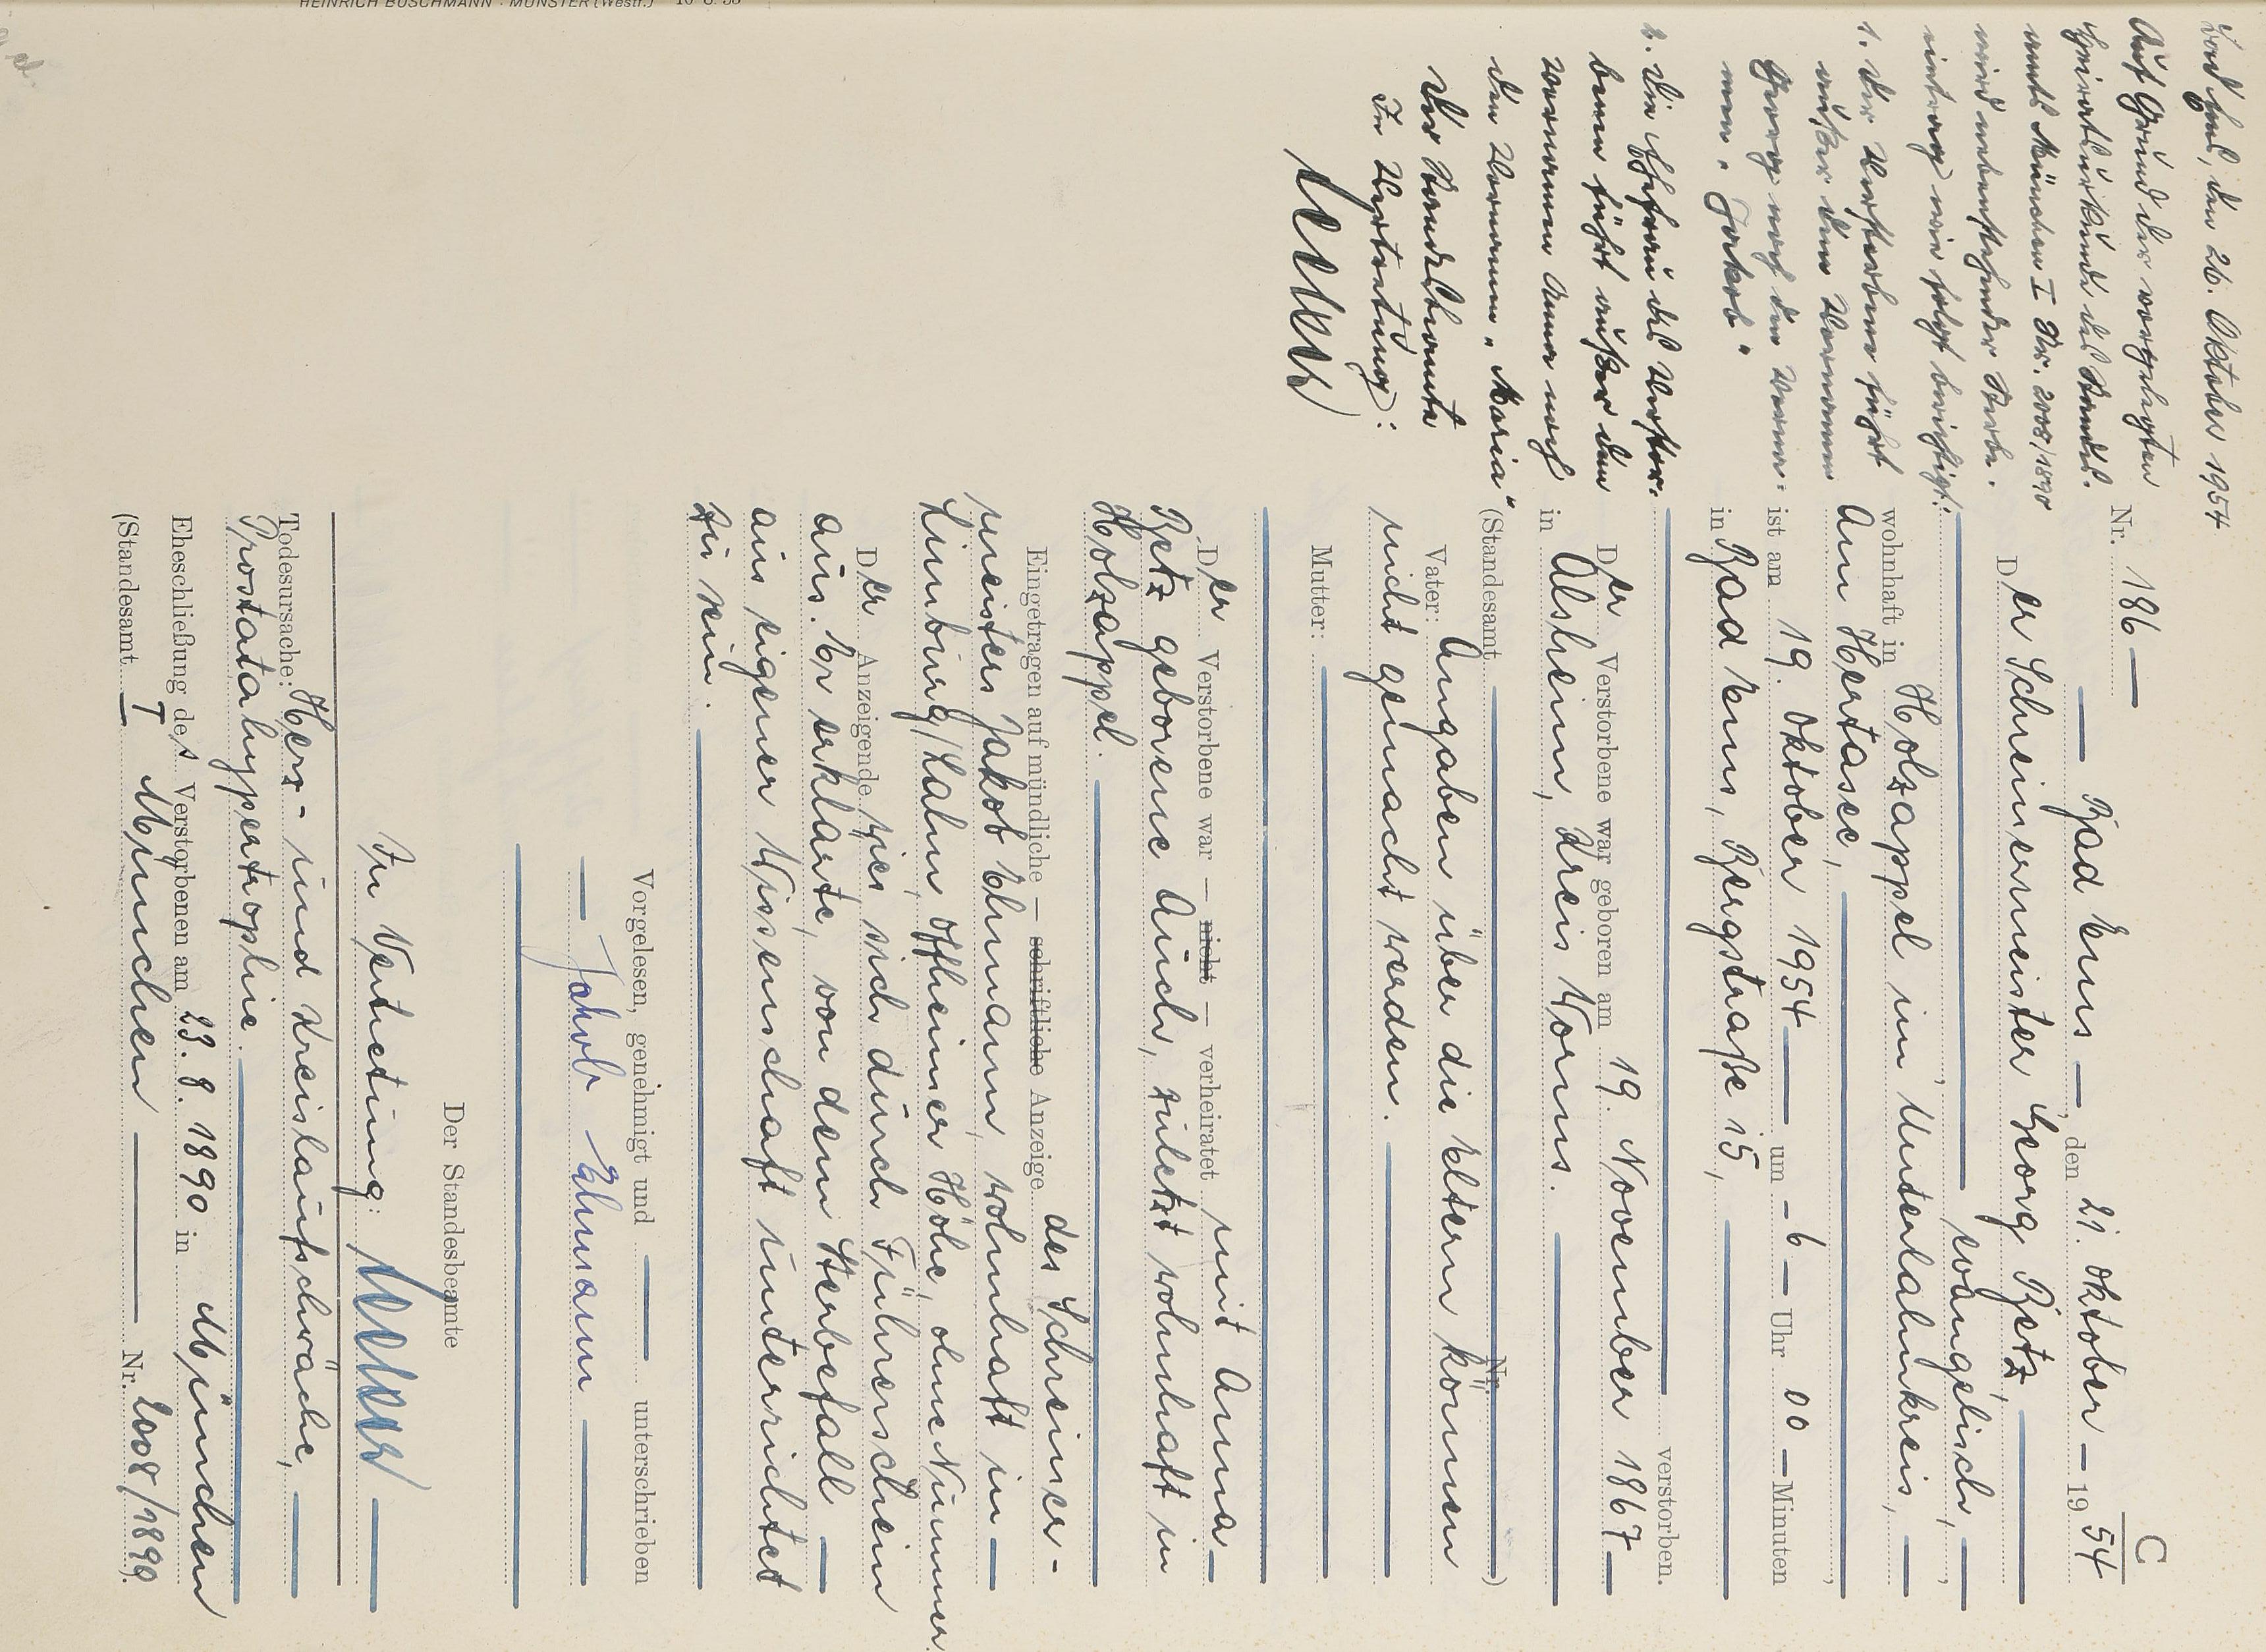 C
Nr. 186 —
— Bad Ems — , den 21. Oktober — 19 54
Der Schreinermeister Georg Betz,
— evangelisch, —
wohnhaft in Holzappel im Unterlahnkreis, —
Am Hertasee, —
ist am 19. Oktober 1954 — um - 6 — Uhr 00 — Minuten
in Bad Ems, Bergstraße 15, —
— verstorben.
Der Verstorbene war geboren am 19. November 1867 —
in Alsheim, Kreis Worms. —
(Standesamt — Nr. )
Vater: Angaben über die Eltern können
nicht gemacht werden. —
Mutter: —
Der Verstorbene war — nicht — verheiratet mit Anna —
Betz geborene Auch, zuletzt wohnhaft in
Holzappel. —
Eingetragen auf mündliche — schriftliche Anzeige des Schreiner-
meisters Jakob Ehmann, wohnhaft in —
Limburg/Lahn, Offheimer Höhe, ohne Nummer.
Der Anzeigende wies sich durch Führerschein
aus. Er erklärte, von dem Sterbefall —
aus eigener Wissenschaft unterrichtet
zu sein. —
Vorgelesen, genehmigt und — unterschrieben
— Jakob Ehmann —
Der Standesbeamte
In Vertretung: —
Todesursache: Herz- und Kreislaufschwäche, —
Prostatahypertrophie. —
Eheschließung des Verstorbenen am 23. 8. 1890 in München
(Standesamt I München — Nr. 2008/1890).
Bad Ems, den 26. Oktober 1954
Auf Grund der vorgelegten
Heiratsurkunde des Stands.
amts München I Nr. 2008/1890
wird nebenstehender Sterbe-
eintrag wie folgt berichtigt:
1. Der Verstorbene führt
außer dem Vornamen
Georg noch den Vorna-
men „Jakob"
2. Die Ehefrau des Verstor-
benen führt außer dem
Vornamen Anna noch
den Vornamen „Maria"
Der Standesbeamte
In Vertretung:
HEINRICH BUSCHMANN · MÜNSTER (Westf.)